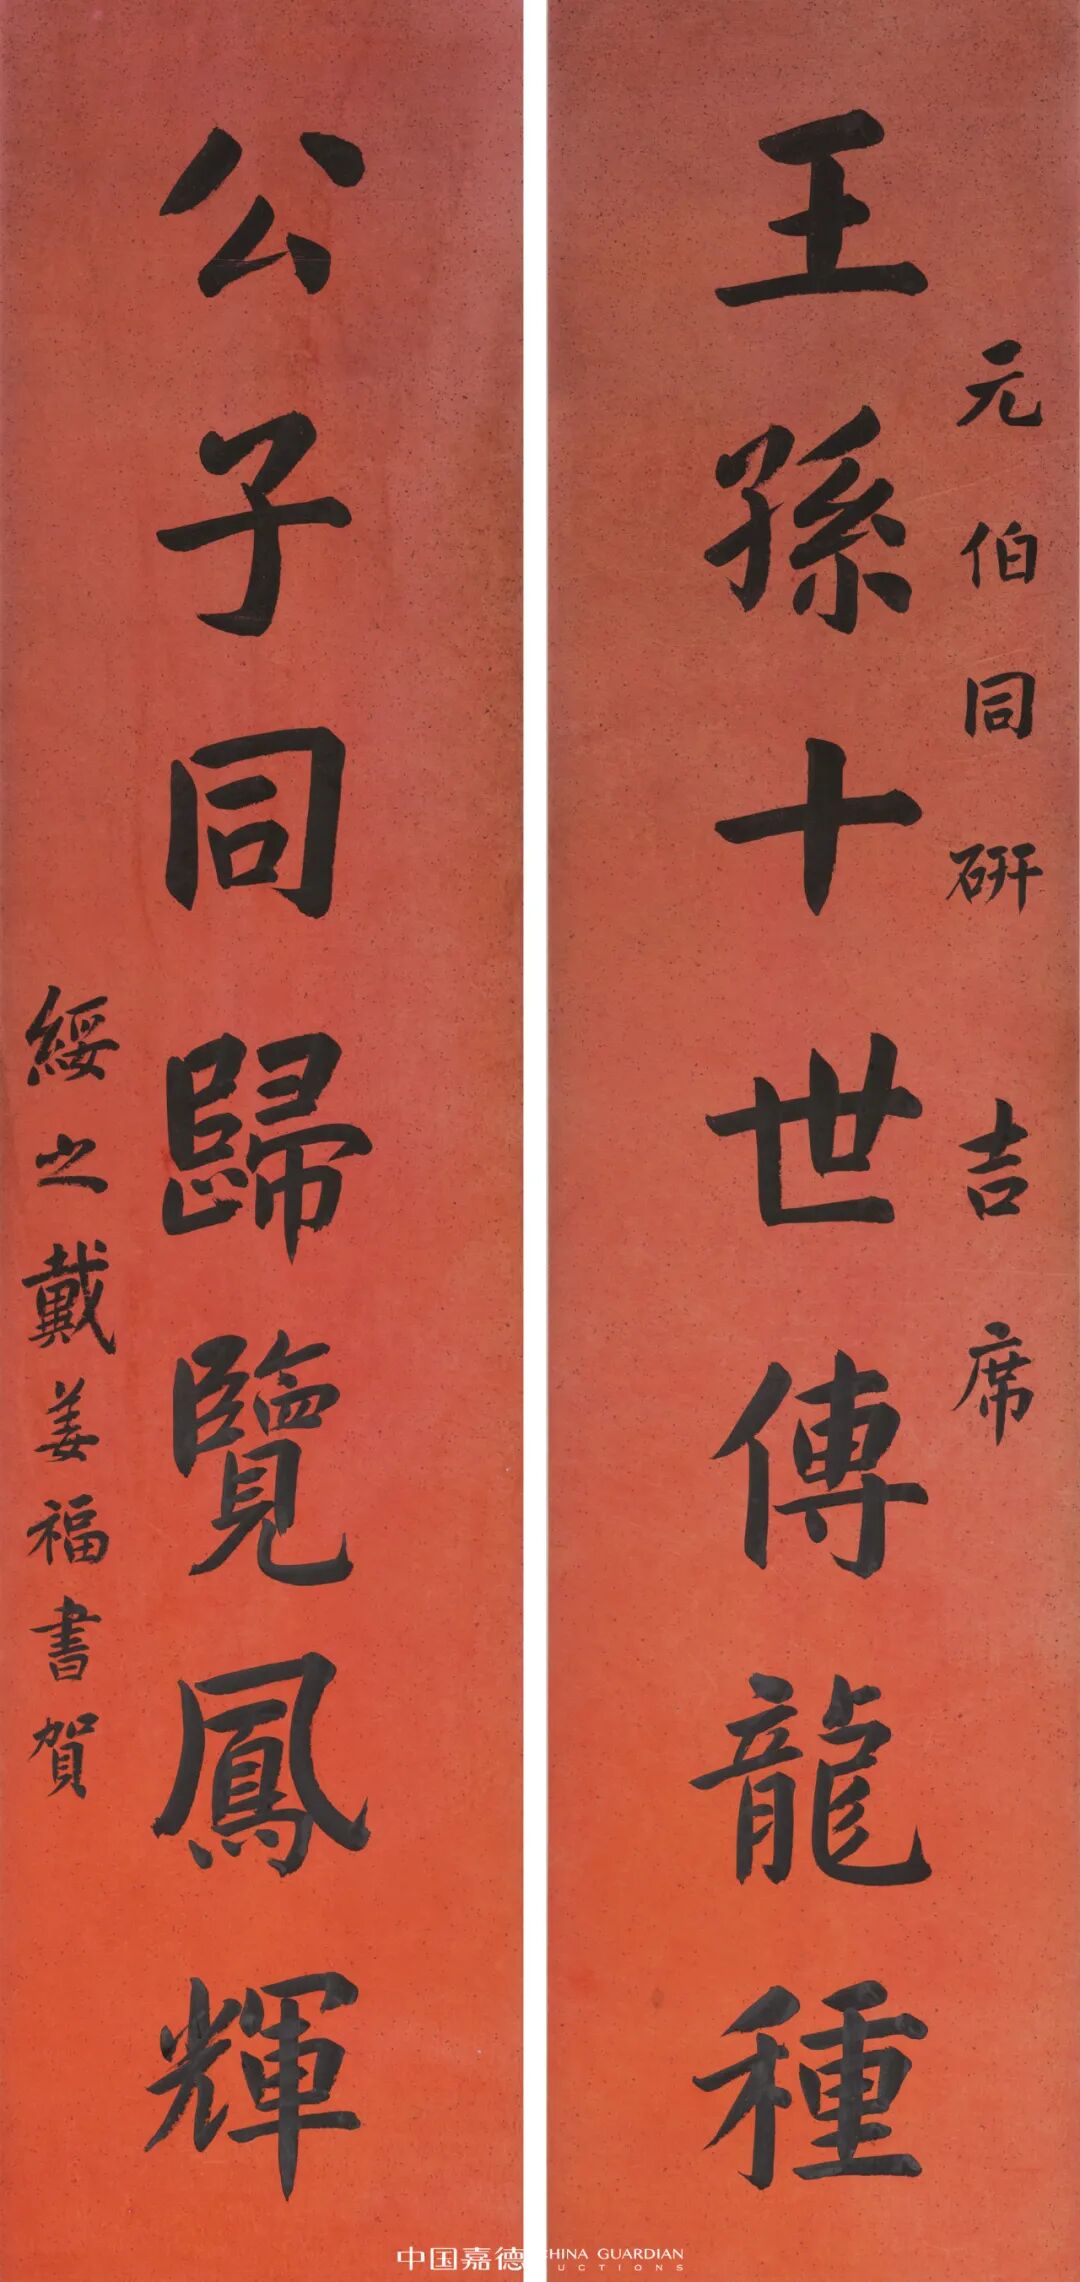 元伯同研吉席
王孫十世傳龍種
公子同歸覽鳳輝
綏之戴姜福書賀
中国嘉德
CHINA GUARDIAN
AUCTIONS